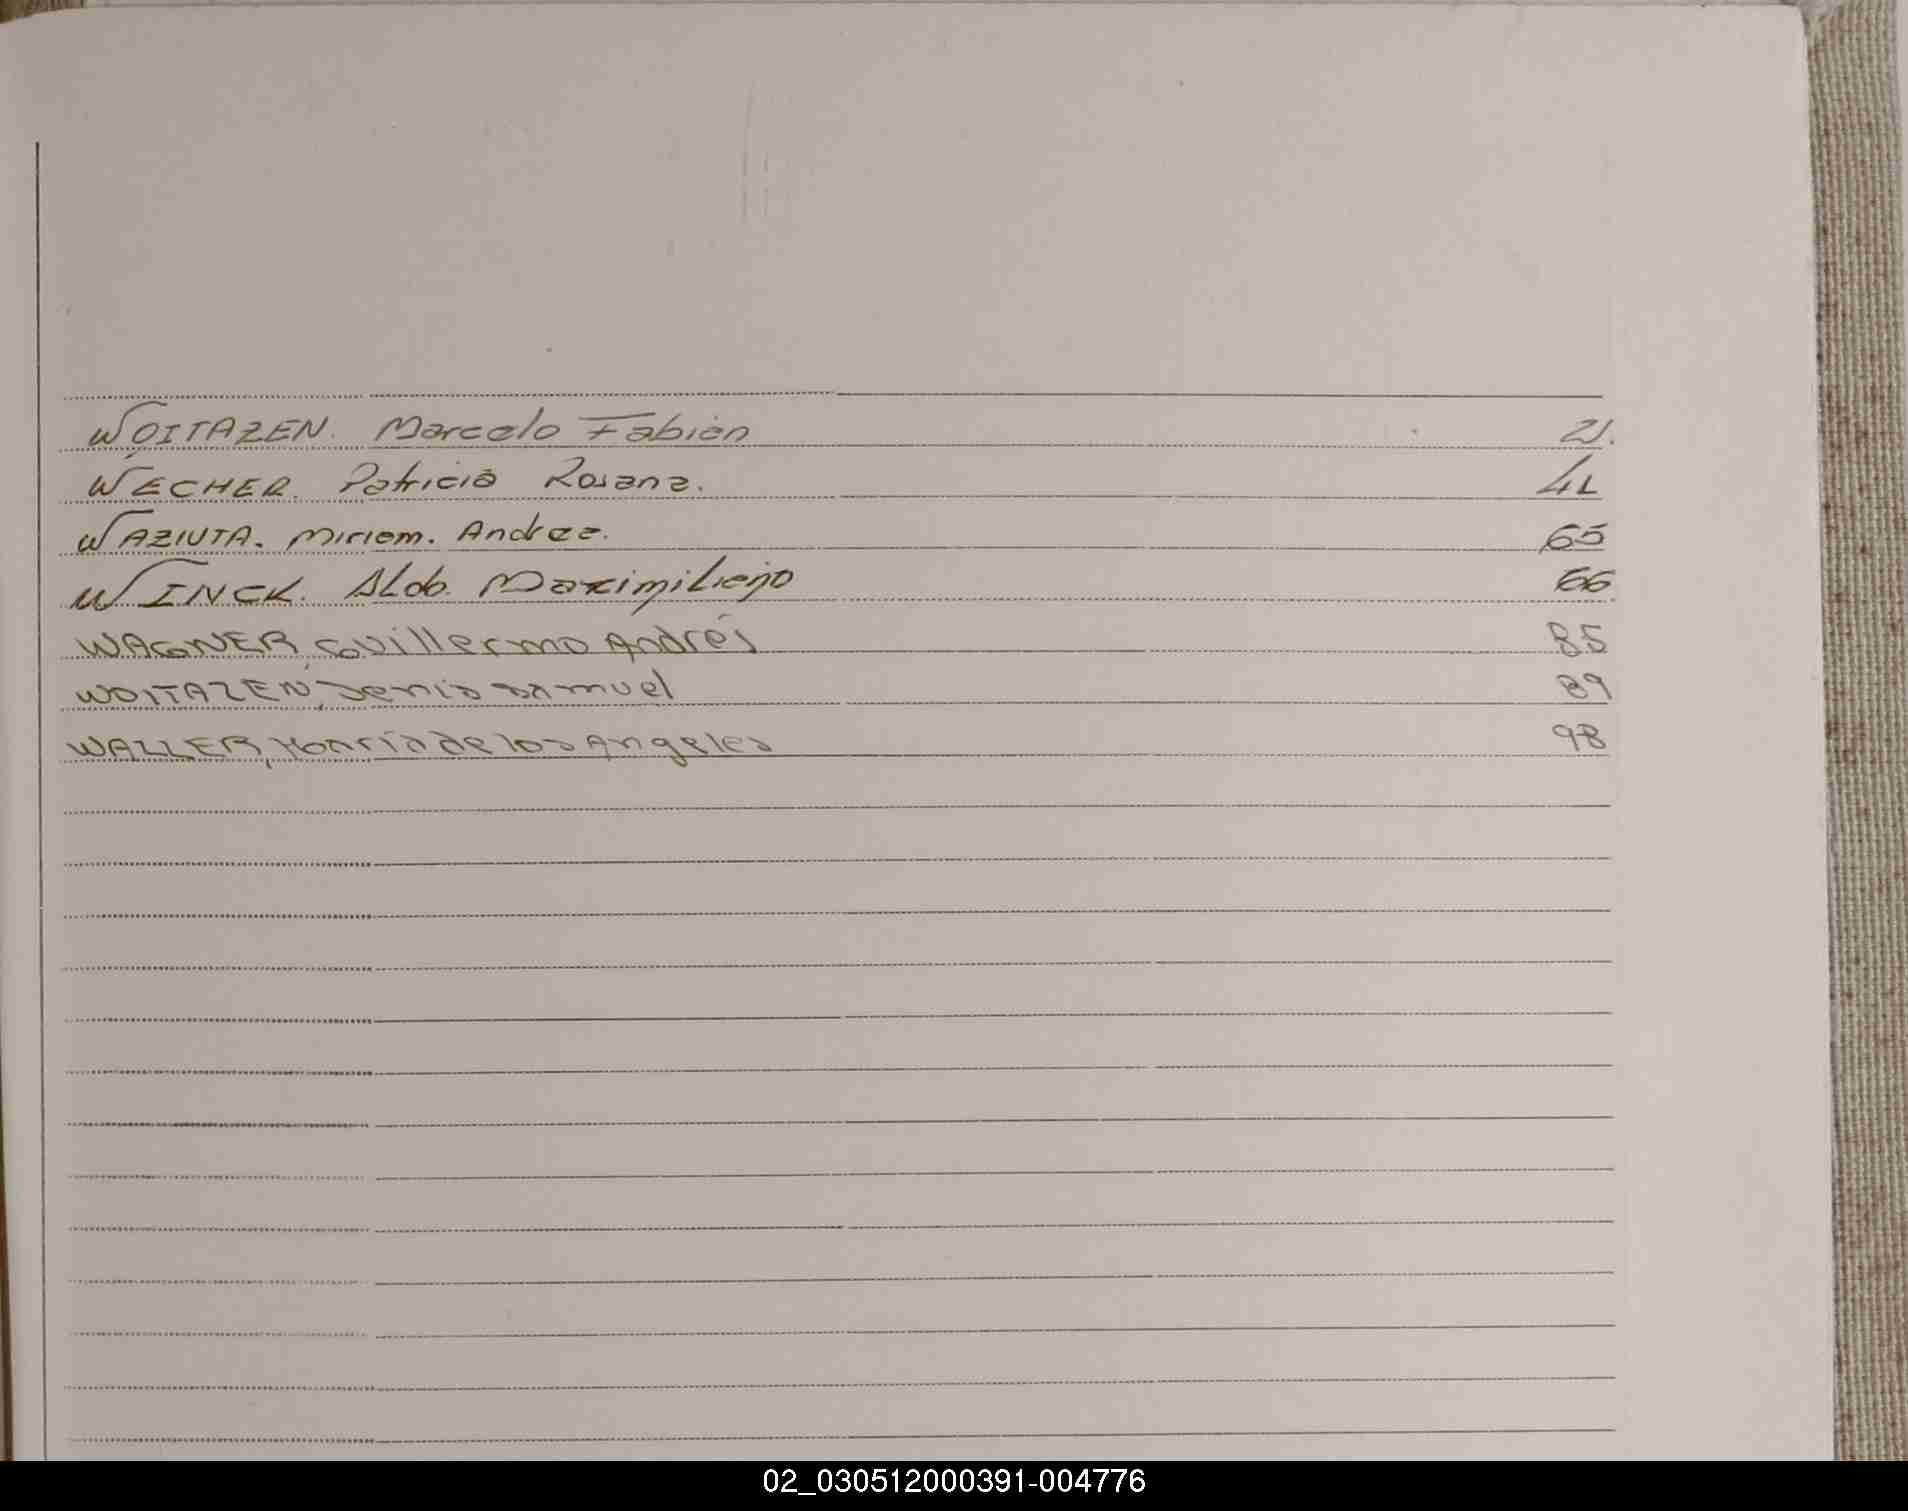 WOITAZEN. Marcelo Fabián 21.
WECHER. Patricia Rosana. 41
WAZIUTA. Miriam. Andrea. 65
WINCK. Aldo. Maximiliano 66
WAGNER, Guillermo Andrés 85
WOITAZEN, Denis Samuel 89
WALLER, María de los Angeles 98
02_030512000391-004776